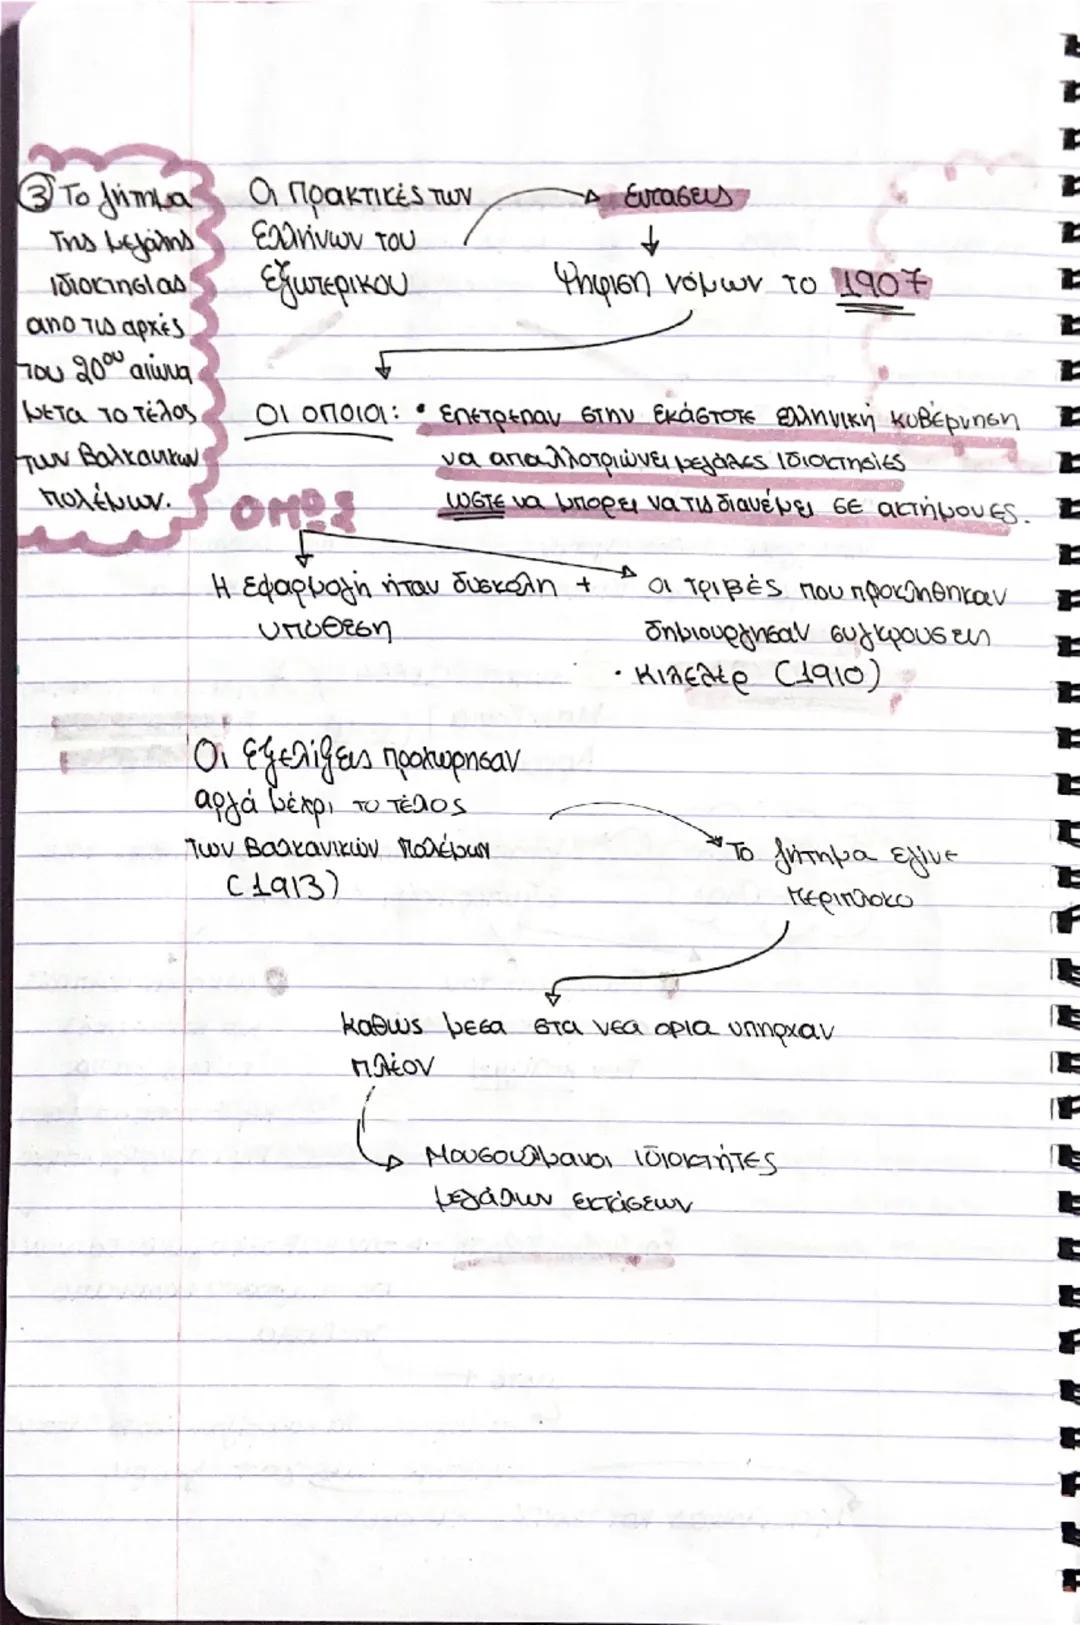 ③ Το ζήτημα
της μεγάλης
ιδιοκτησίας
απο τις αρχές
του 20ου αιώνα
μετα το τέλος
των Βαλκανικων
πολέμων.
Οι πρακτικές των
Ελλήνων του
Εξωτερικου
Εντασεις
Ψηφιση νόμων το 1907
ΟΙ ΟΠΟΙΟΙ: • Επετρεπαν στην εκάστοτε ελληνική κυβέρνηση
να απαλλοτριώνει μεγάλες ιδιοκτησίες
ωστε να μπορει να τις διανέμει σε ακτήμονες.
ΟΜΩΣ
Η εφαρμογή ήταν δύσκολη +
υπόθεση
οι τριβές που προκλήθηκαν
δημιουργησαν συγκρουσεις
• Κιλελέρ (1910)
Οι εξελίξεις προχωρησαν
αργά μέχρι το τέλος
των Βαλκανικών πολέμων
(1913)
Το ζήτημα εγινε
περιπλοκο
καθως μεσα στα νεα ορια υπηρχαν
πλέον
Μουσουλμανοι ιδιοκτήτες
μεγάλων εκτάσεων